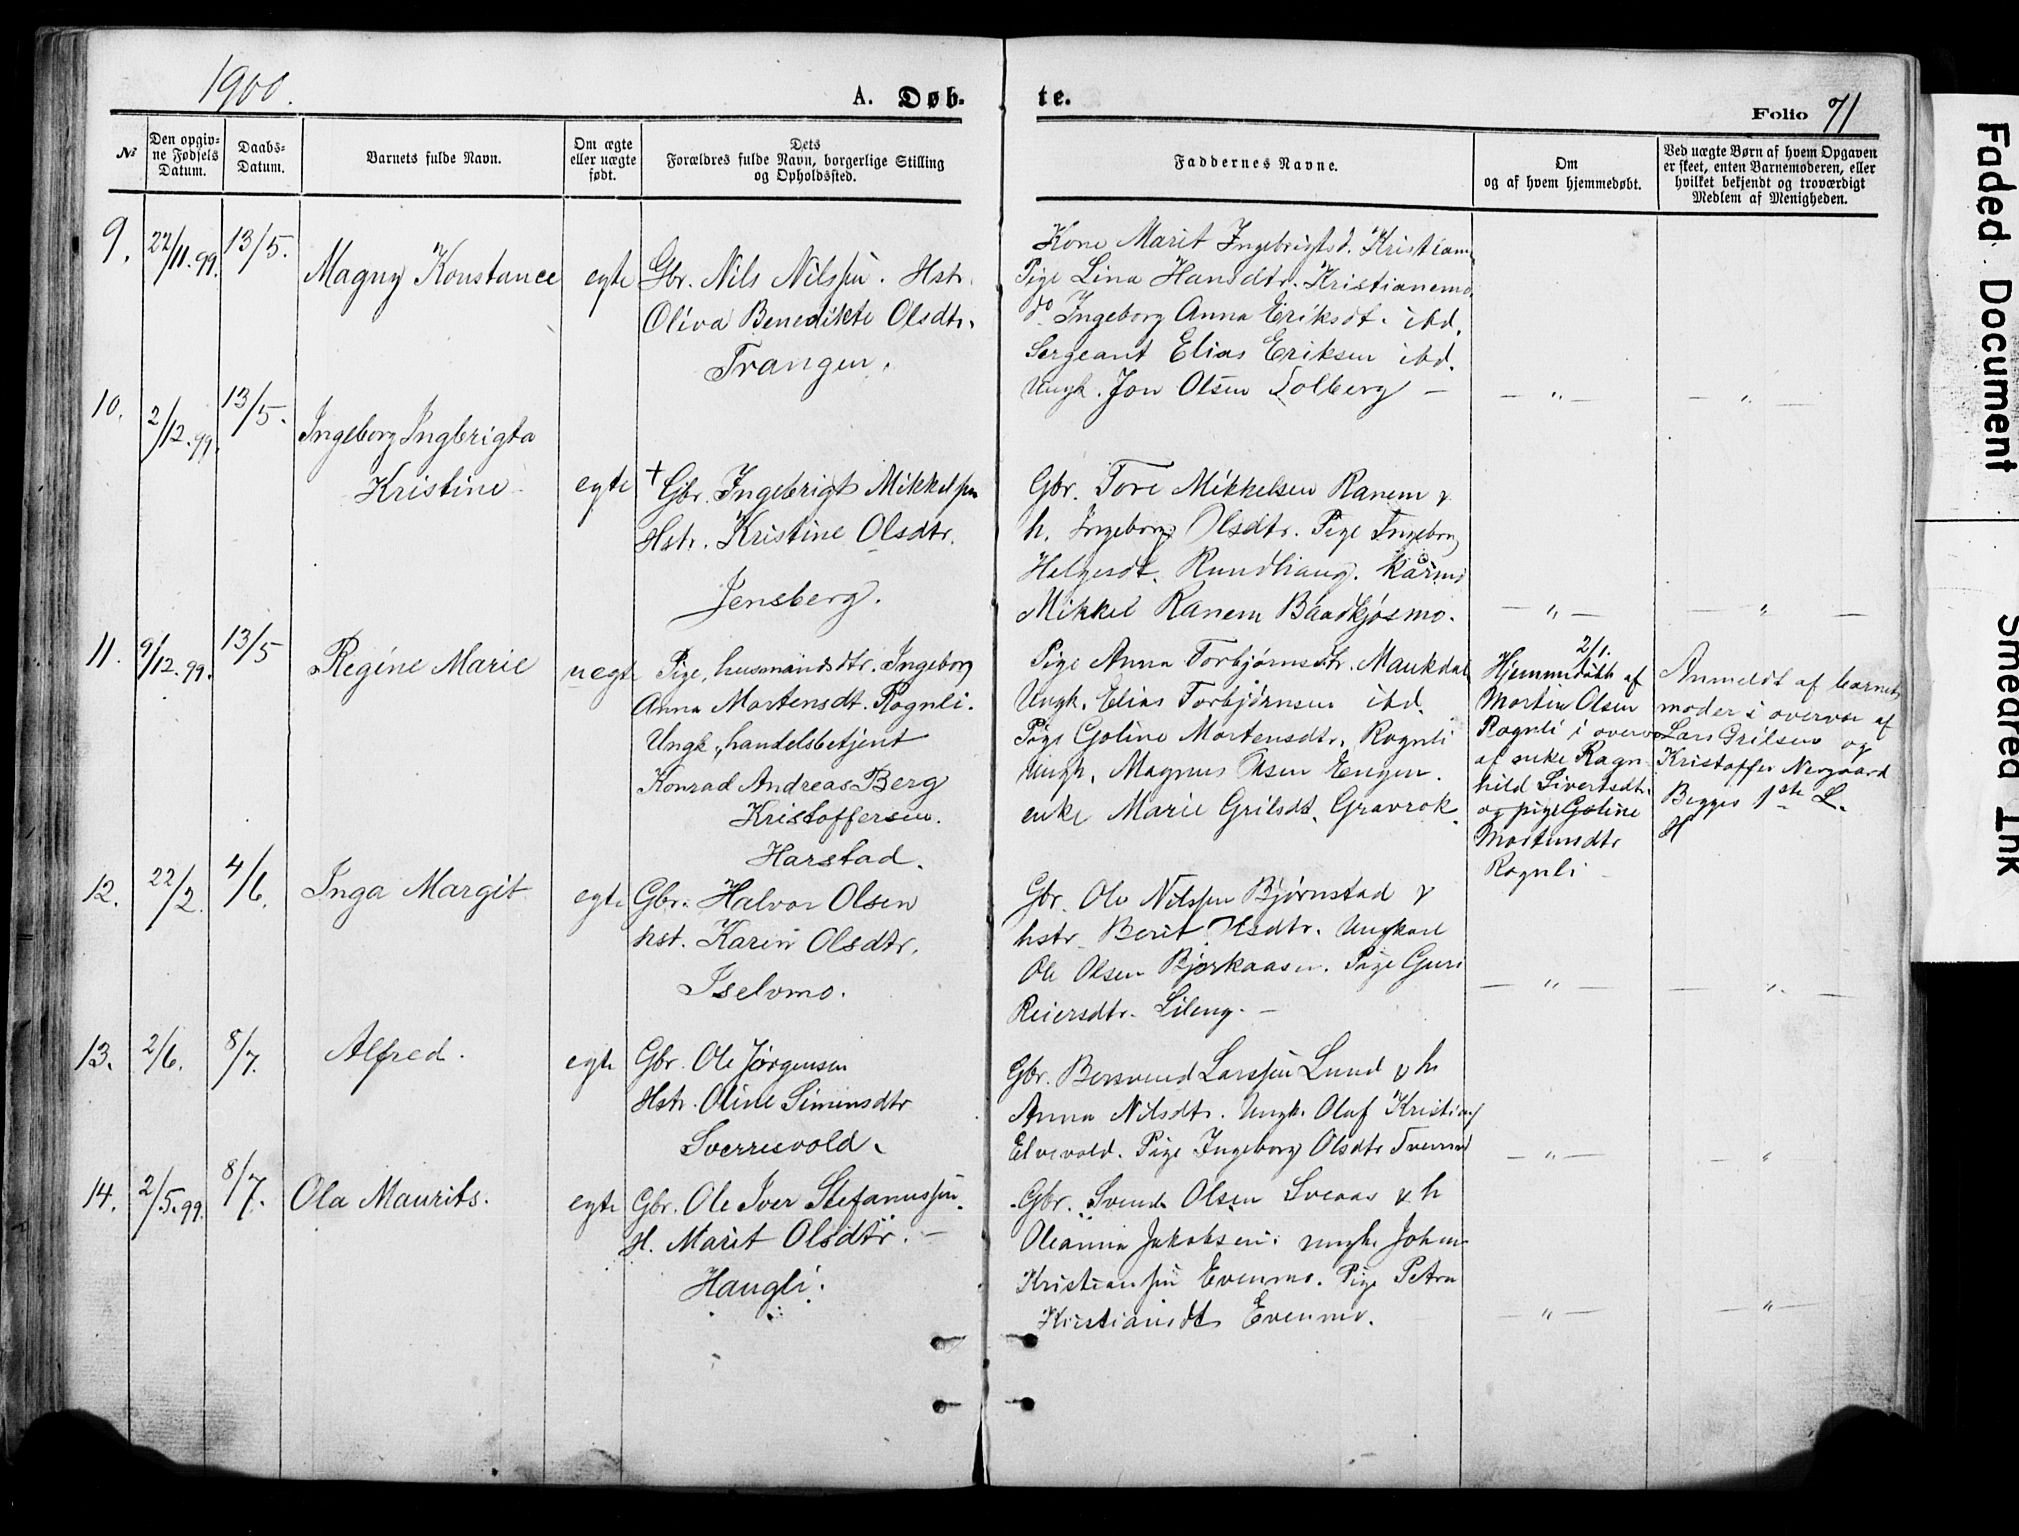 1900.
A. Døb-
te.
Folio 71
№
Den opgiv-
ne Fødsels
Datum.
Daabs-
Datum.
Barnets fulde Navn.
Om ægte
eller uægte
født.
Dets
Forældres fulde Navn, borgerlige Stilling
og Opholdssted.
Faddernes Navne.
Om
og af hvem hjemmedøbt.
Ved uægte Børn af hvem Opgaven
er skeet, enten Barnemoderen, eller
hvilket bekjendt og troværdigt
Medlem af Menigheden.
9.
22/11.99.
13/5.
Magny Konstance
egte
Gbr. Nils Nilssen. Hstr.
Oliva Benedikte Olsdtr.
Trangen.
Kone Marit Ingebrigtsd. Kristian
Pige Lina Hansdtr. Kristianemo.
do Ingeborg Anna Eriksdt. ibd.
Sergeant Elias Eriksen ibd.
Ungk. Jon Olsen Solberg —
— „ —
— „ —
10.
2/12.99.
13/5.
Ingeborg Ingbrigta
Kristine
egte
+ Gbr. Ingebrigt Mikkelsen
Hstr. Kristine Olsdtr.
Jensberg.
Gbr. Tore Mikkelsen Ranem &
h. Ingeborg Olsdtr. Pige Ingeborg
Helgesdt. Rundhaug.
Mikkel Ranem Baadkjøsmo.
— „ —
— „ —
11.
9/12.99.
13/5
Regine Marie
uegte
Pige, husmandsdtr. Ingeborg
Anna Mortensdt. Rognli.
Ungk., handelsbetjent
Konrad Andreas Berg
Kristoffersen.
Harstad.
Pige Anna Torbjørnsdtr. Maukdal
Ungk. Elias Torbjørnsen ibd.
Pige Goline Mortensdtr. Rognli
Ungk. Magnus Olsen Engen.
enke Marie Grilsdt. Gravrok.
2/1.
Hjemmedøbt af
Mortin Olsen
Rognli i overv.
af enke Ragn-
hild Sivertsdtr.
og pige Goline
Mortensdtr
Rognli
Anmeldt af barnets
moder i overvær af
Lars Grilsen og
Kristoffer Nergaard
Begges 1ste L.
H
12.
22/2.
4/6.
Inga Margit
egte
Gbr. Halvor Olsen
hst. Karen Olsdtr.
Iselvmo.
Gbr. Ole Nilssen Bjørnstad &
hstr. Berit Olsdtr. Ungkarl
Ole Olsen Bjørkaasen. Pige Guri
Reiersdtr. Lileng. —
— „ —
— „ —
13.
2/6.
8/7.
Alfred.
egte
Gbr. Ole Jørgensen
Hstr. Oline Simensdtr
Sverresvold.
Gbr. Bersvend Larssen Lund & h
Anna Nilsdtr. Ungk. Olaf Kristians
Elvevold. Pige Ingeborg Olsdtr
— „ —
— „
14.
2/5.99.
8/7.
Ola Maurits.
egte
Gbr. Ole Iver Stefanussen.
H. Marit Olsdtr. —
Haugli.
Gbr. Svend Olsen Sveaas & h
Oleanna Jakobsen. ungk. Johan
Kristianssen Evenmo. Pige Petra
Kristiansdt Evenmo.
— „ —
— „ —
Faded Document
Smeared Ink